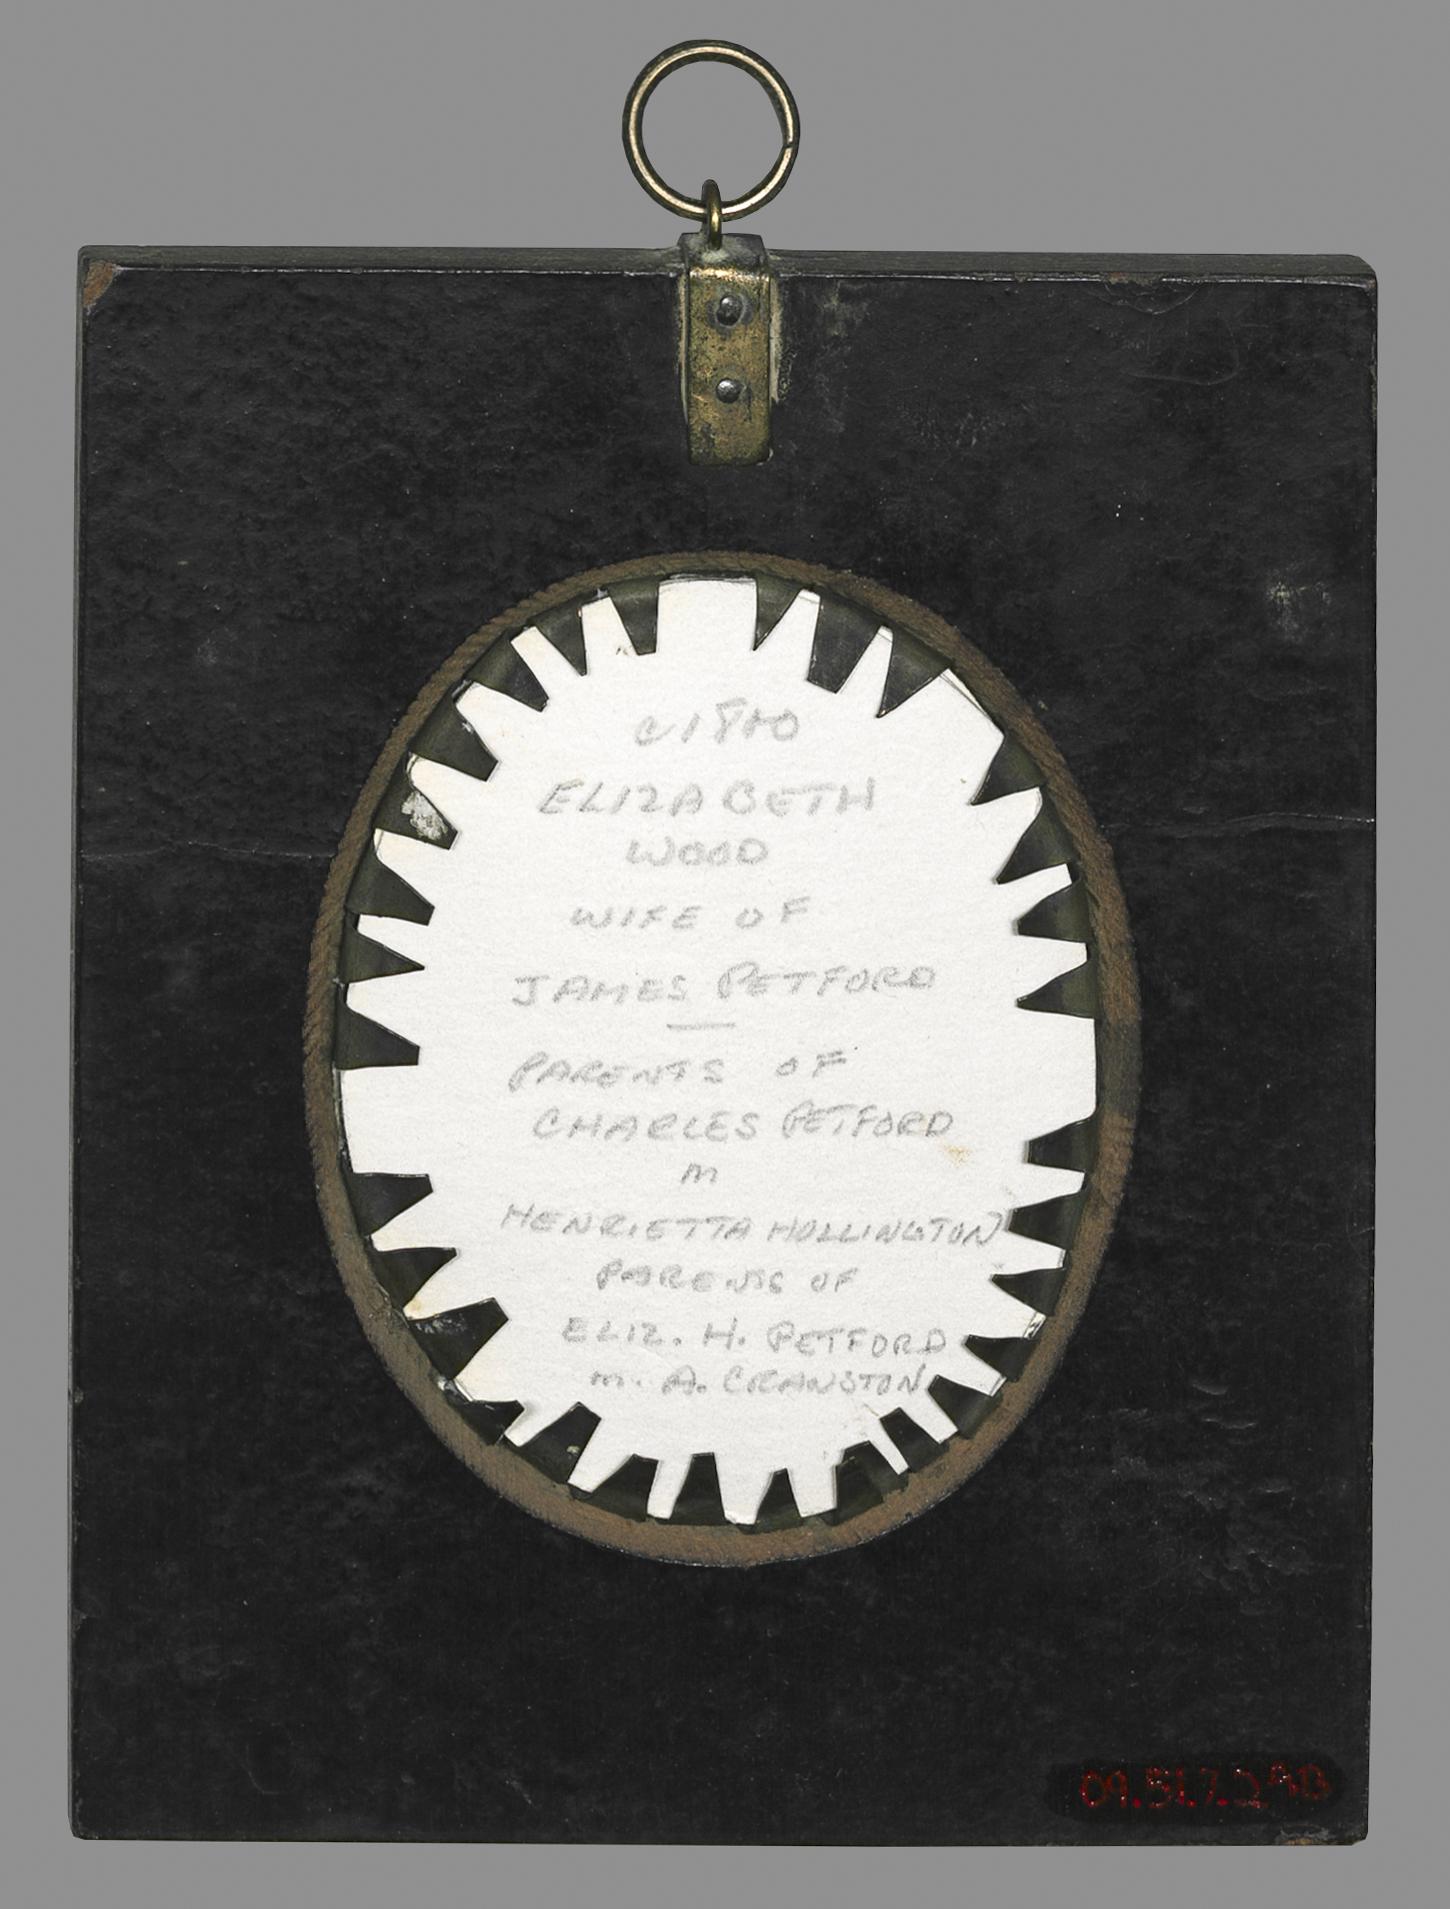 c 1810
ELIZABETH
WOOD
WIFE OF
JAMES PETFORD
—
PARENTS OF
CHARLES PETFORD
m
HENRIETTA HOLLINGTON
PARENTS OF
ELIZ. H. PETFORD
m. A. CRANSTON